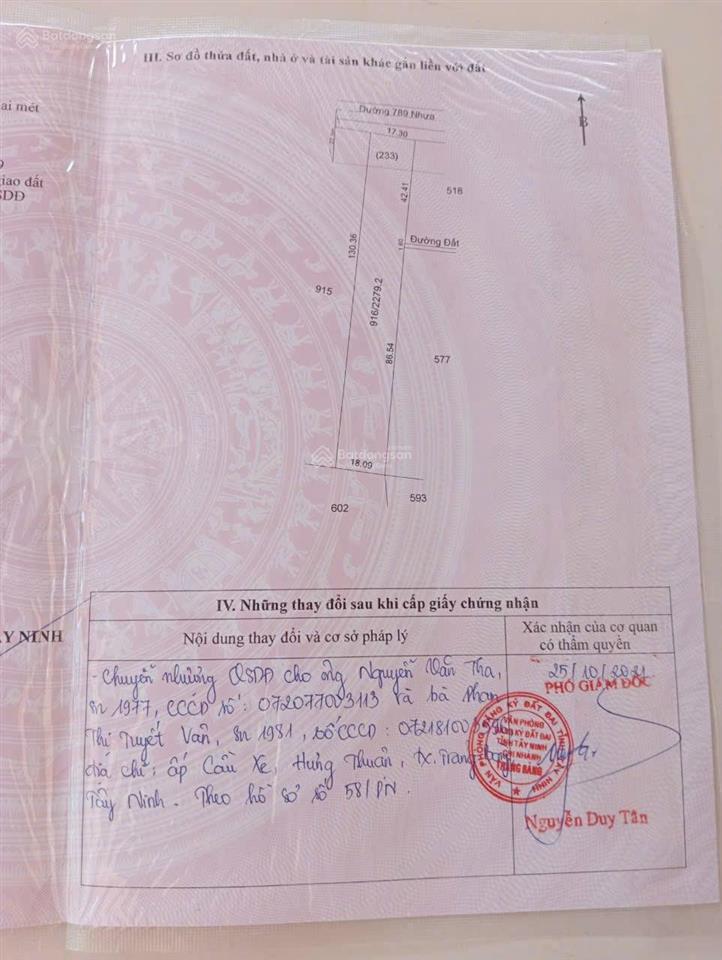 Batdongsan
III. Sơ đồ thửa đất, nhà ở và tài sản khác gắn liền với đất
ai mét
giao đất
SDĐ
Đường 789 Nhựa
17.30
(233)
B
42.41
518
130.36
1.60
Đường Đất
915
916/2279.2
86.54
577
Batdongsan
18.09
593
602
Y NINH
IV. Những thay đổi sau khi cấp giấy chứng nhận
Nội dung thay đổi và cơ sở pháp lý
Xác nhận của cơ quan
có thẩm quyền
- Chuyển nhượng QSDĐ cho ông Nguyễn Văn Tha,
sn 1977, CCCD số: 072077003113 và bà Phan
Thị Tuyết Vân, sn 1981, số CCCD:
địa chỉ: ấp Cầu Xe, Hưng Thuận, tx. Trảng Bàng,
Tây Ninh. Theo hồ sơ số 58/PN.
25/10/2021
PHÓ GIÁM ĐỐC
VĂN PHÒNG ĐĂNG KÝ ĐẤT ĐAI TỈNH TÂY NINH
VĂN PHÒNG
ĐĂNG KÝ ĐẤT ĐAI
TỈNH TÂY NINH
CHI NHÁNH
TRẢNG BÀNG
Nguyễn Duy Tân
Batdongsan